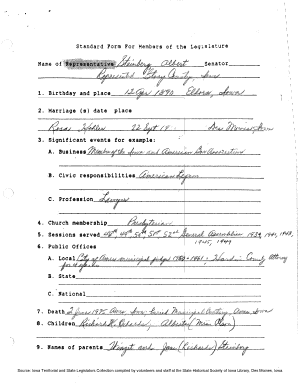 Standard Form For Members of the Legislature
Name of Representative Steinberg Albert Senator
Represented Story County, Iowa
1. Birthday and place 12 Apr 1890 Eldora, Iowa
2. Marriage (s) date place
Kohler 26 Sept 19 Des Moines, Iowa
3. Significant events for example:
A. Business Member of the Iowa and American Bar Association
B. Civic responsibilities American Legion
C. Profession Lawyer
4. Church membership Presbyterian
5. Sessions served 48th 49th 50th 51st 52nd General Assemblies 1939, 1941, 1943,
1945, 1947
6. Public Offices
A. Local City of Ames municipal judge Hardin County Attorney
B. State
C. National
7. Death 2 June 1975 Ames, Iowa Ames, Iowa
8. Children Richard K. Richards; Alberta (Mrs. Olson)
9. Names of parents and Jane (Richards) Steinberg
Source: Iowa Territorial and State Legislators Collection compiled by volunteers and staff at the State Historical Society of Iowa Library, Des Moines, Iowa.